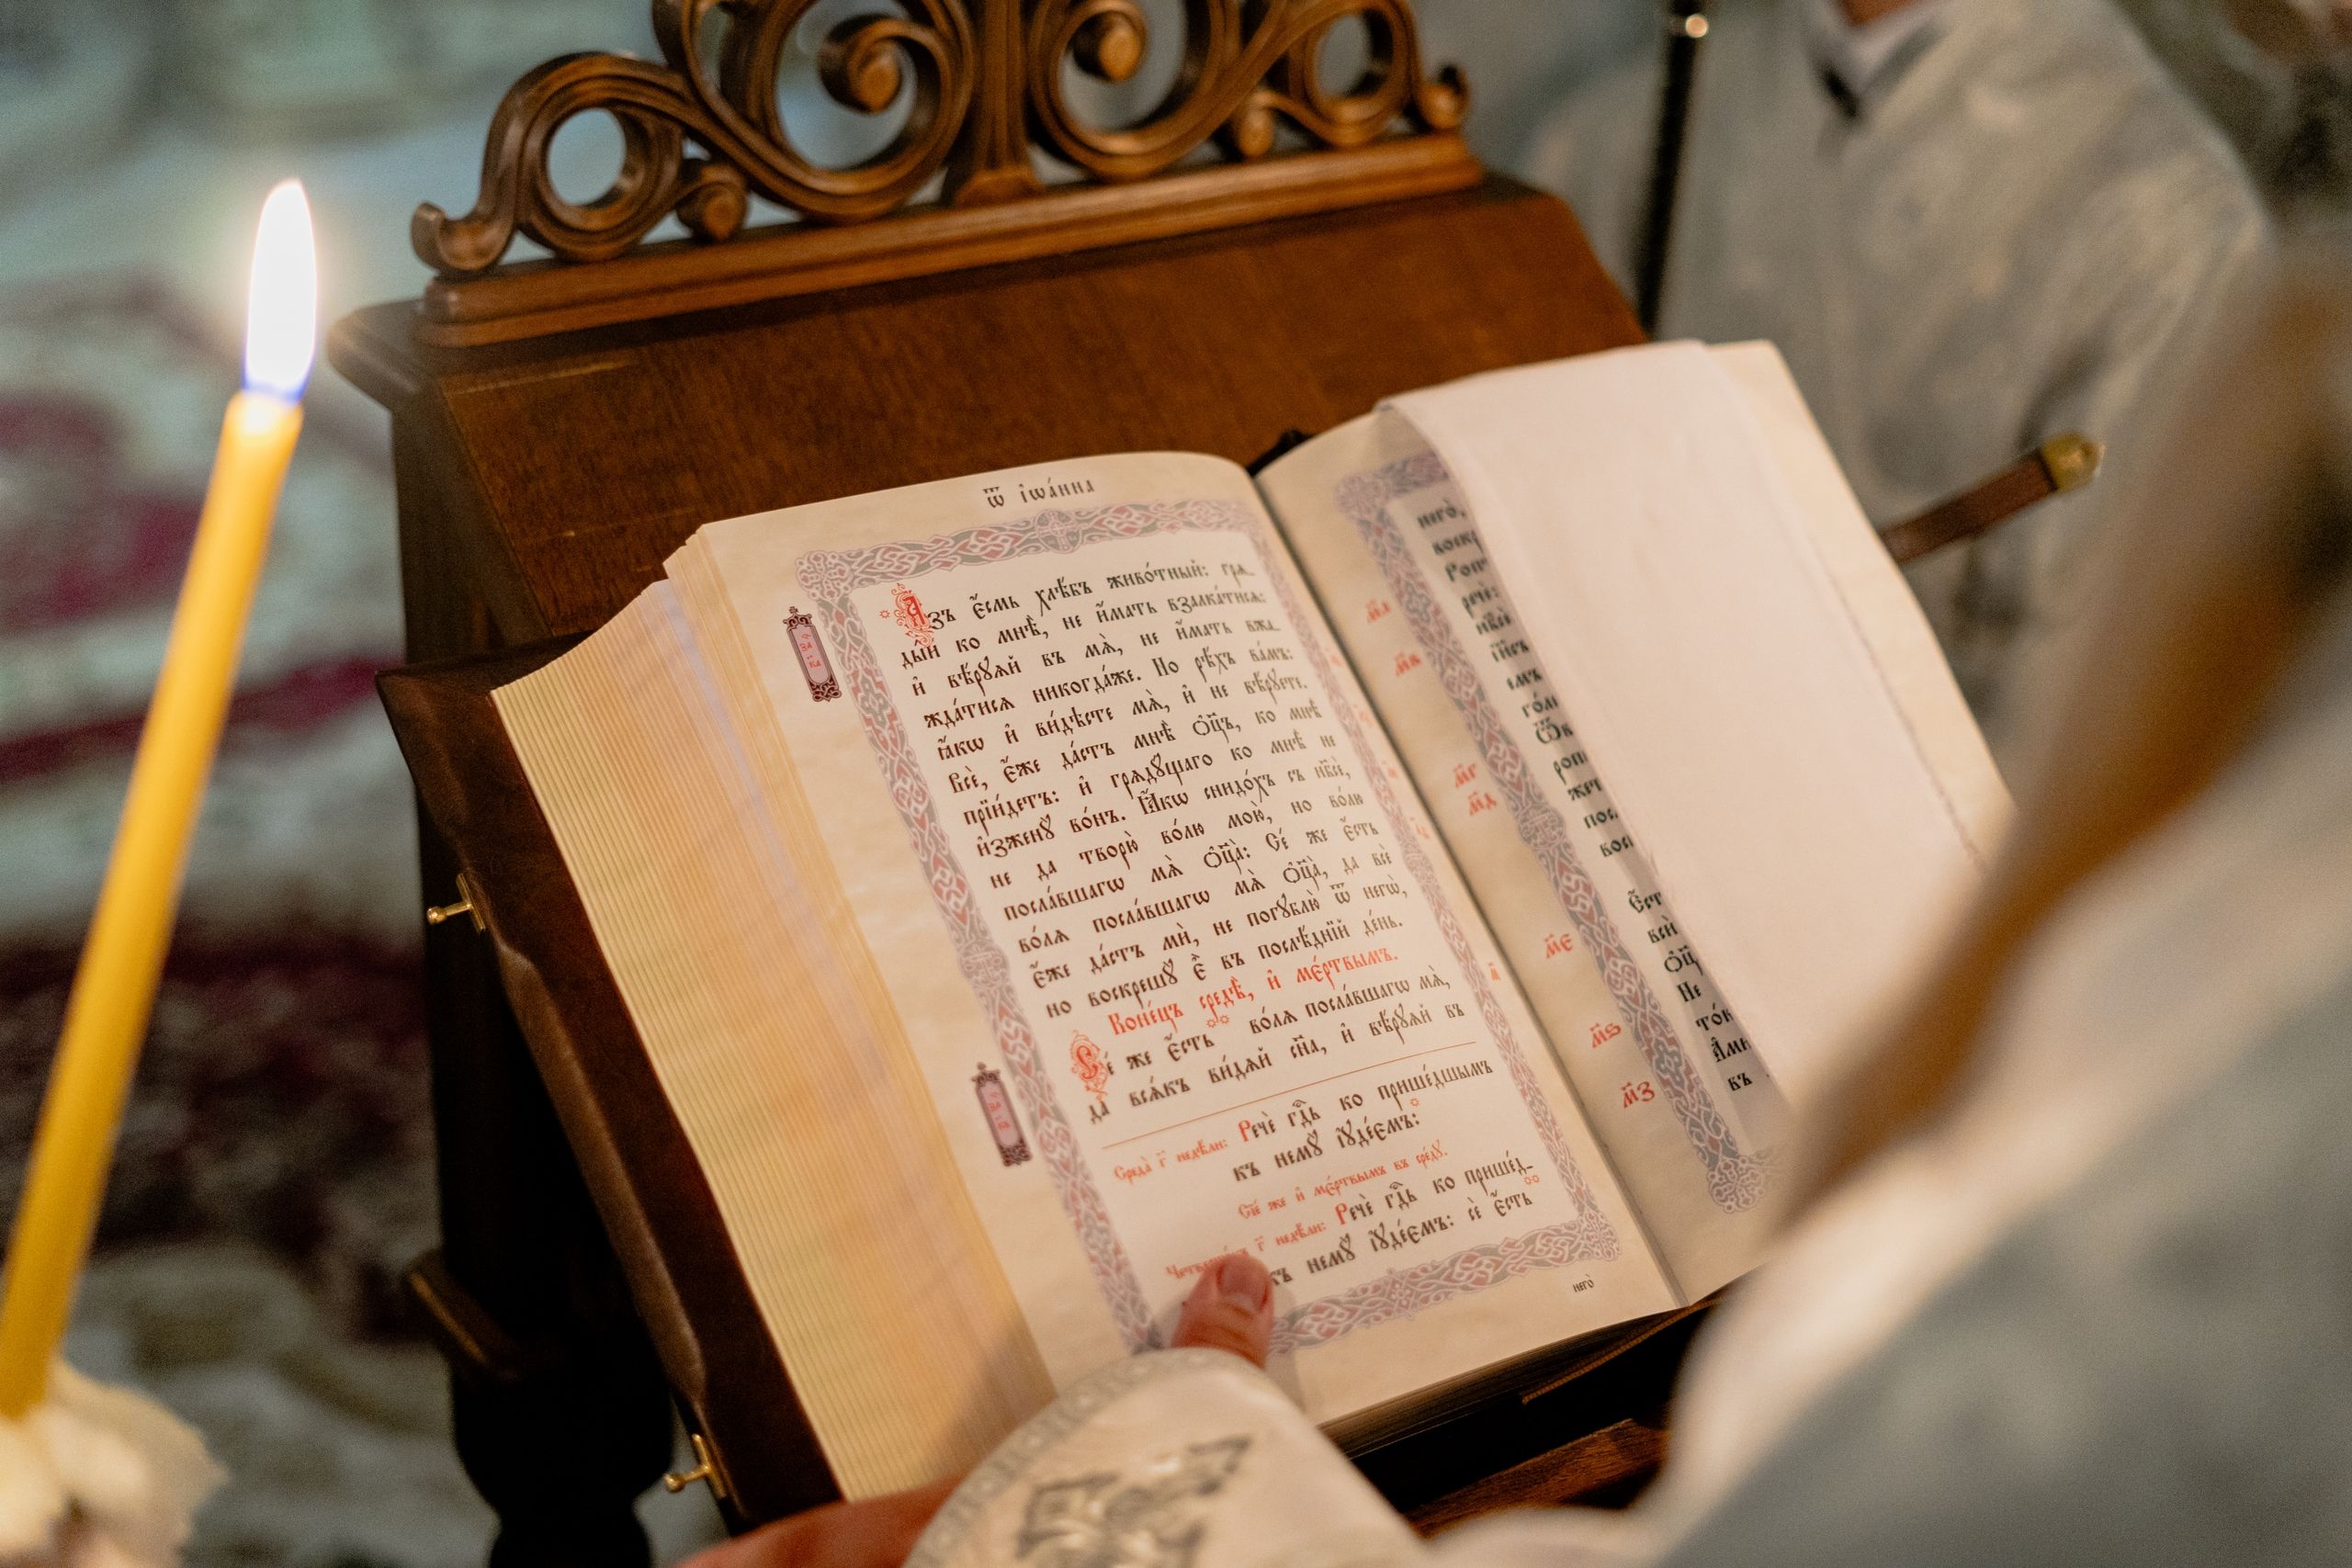 Ѿ І҆ѡа́нна
А҆́зъ є҆́смь хлѣ́бъ живо́тный: грѧ-
ды́й ко мнѣ̀, не и҆́мать взалка́тисѧ:
и҆ вѣ́рꙋѧй въ мѧ̀, не и҆́мать вжа-
жда́тисѧ никогда́же. Но рѣ́хъ ва́мъ:
ꙗ҆́кѡ и҆ ви́дѣсте мѧ̀, и҆ не вѣ́рꙋете.
Всѐ, є҆́же да́стъ мнѣ̀ ѻ҆ц҃ъ, ко мнѣ̀
прїи́детъ: и҆ грѧдꙋ́щаго ко мнѣ̀ не
и҆зженꙋ̀ во́нъ. Ꙗ҆́кѡ снидо́хъ съ нб҃сѐ,
не да творю̀ во́лю мою̀, но во́лю
посла́вшагѡ мѧ̀ ѻ҆ц҃а̀: Се́ же є҆́сть
во́лѧ посла́вшагѡ мѧ̀ ѻ҆ц҃а̀, да всѐ
є҆́же да́стъ мѝ, не погꙋблю̀ ѿ негѡ̀,
но воскрешꙋ̀ є҆̀ въ послѣ́днїй де́нь.
Коне́цъ средѣ̀, и҆ мє́ртвымъ.
Се́ же є҆́сть во́лѧ посла́вшагѡ мѧ̀,
да всѧ́къ ви́дѧй сн҃а, и҆ вѣ́рꙋѧй въ
Среда̀ г҃ недѣ́ли: Речѐ гдⷭ҇ь ко прише́дшымъ
къ немꙋ̀ і҆ꙋде́ємъ:
Сїѐ же и҆ мє́ртвымъ въ сре́дꙋ.
г҃ недѣ́ли: Речѐ гдⷭ҇ь ко прише́д-
къ немꙋ̀ і҆ꙋде́ємъ: сѐ є҆́сть
него̀
него̀,
м҃а
м҃в
м҃г
м҃д
м҃є
м҃ѕ
м҃з
Не
въ